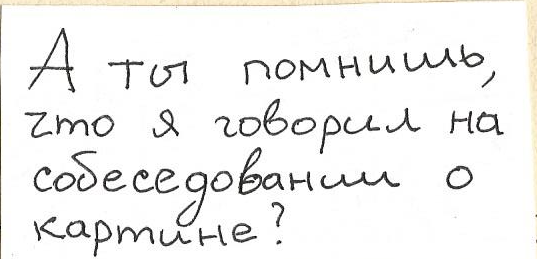 А ты помнишь,
что я говорил на
собеседовании о
картине?